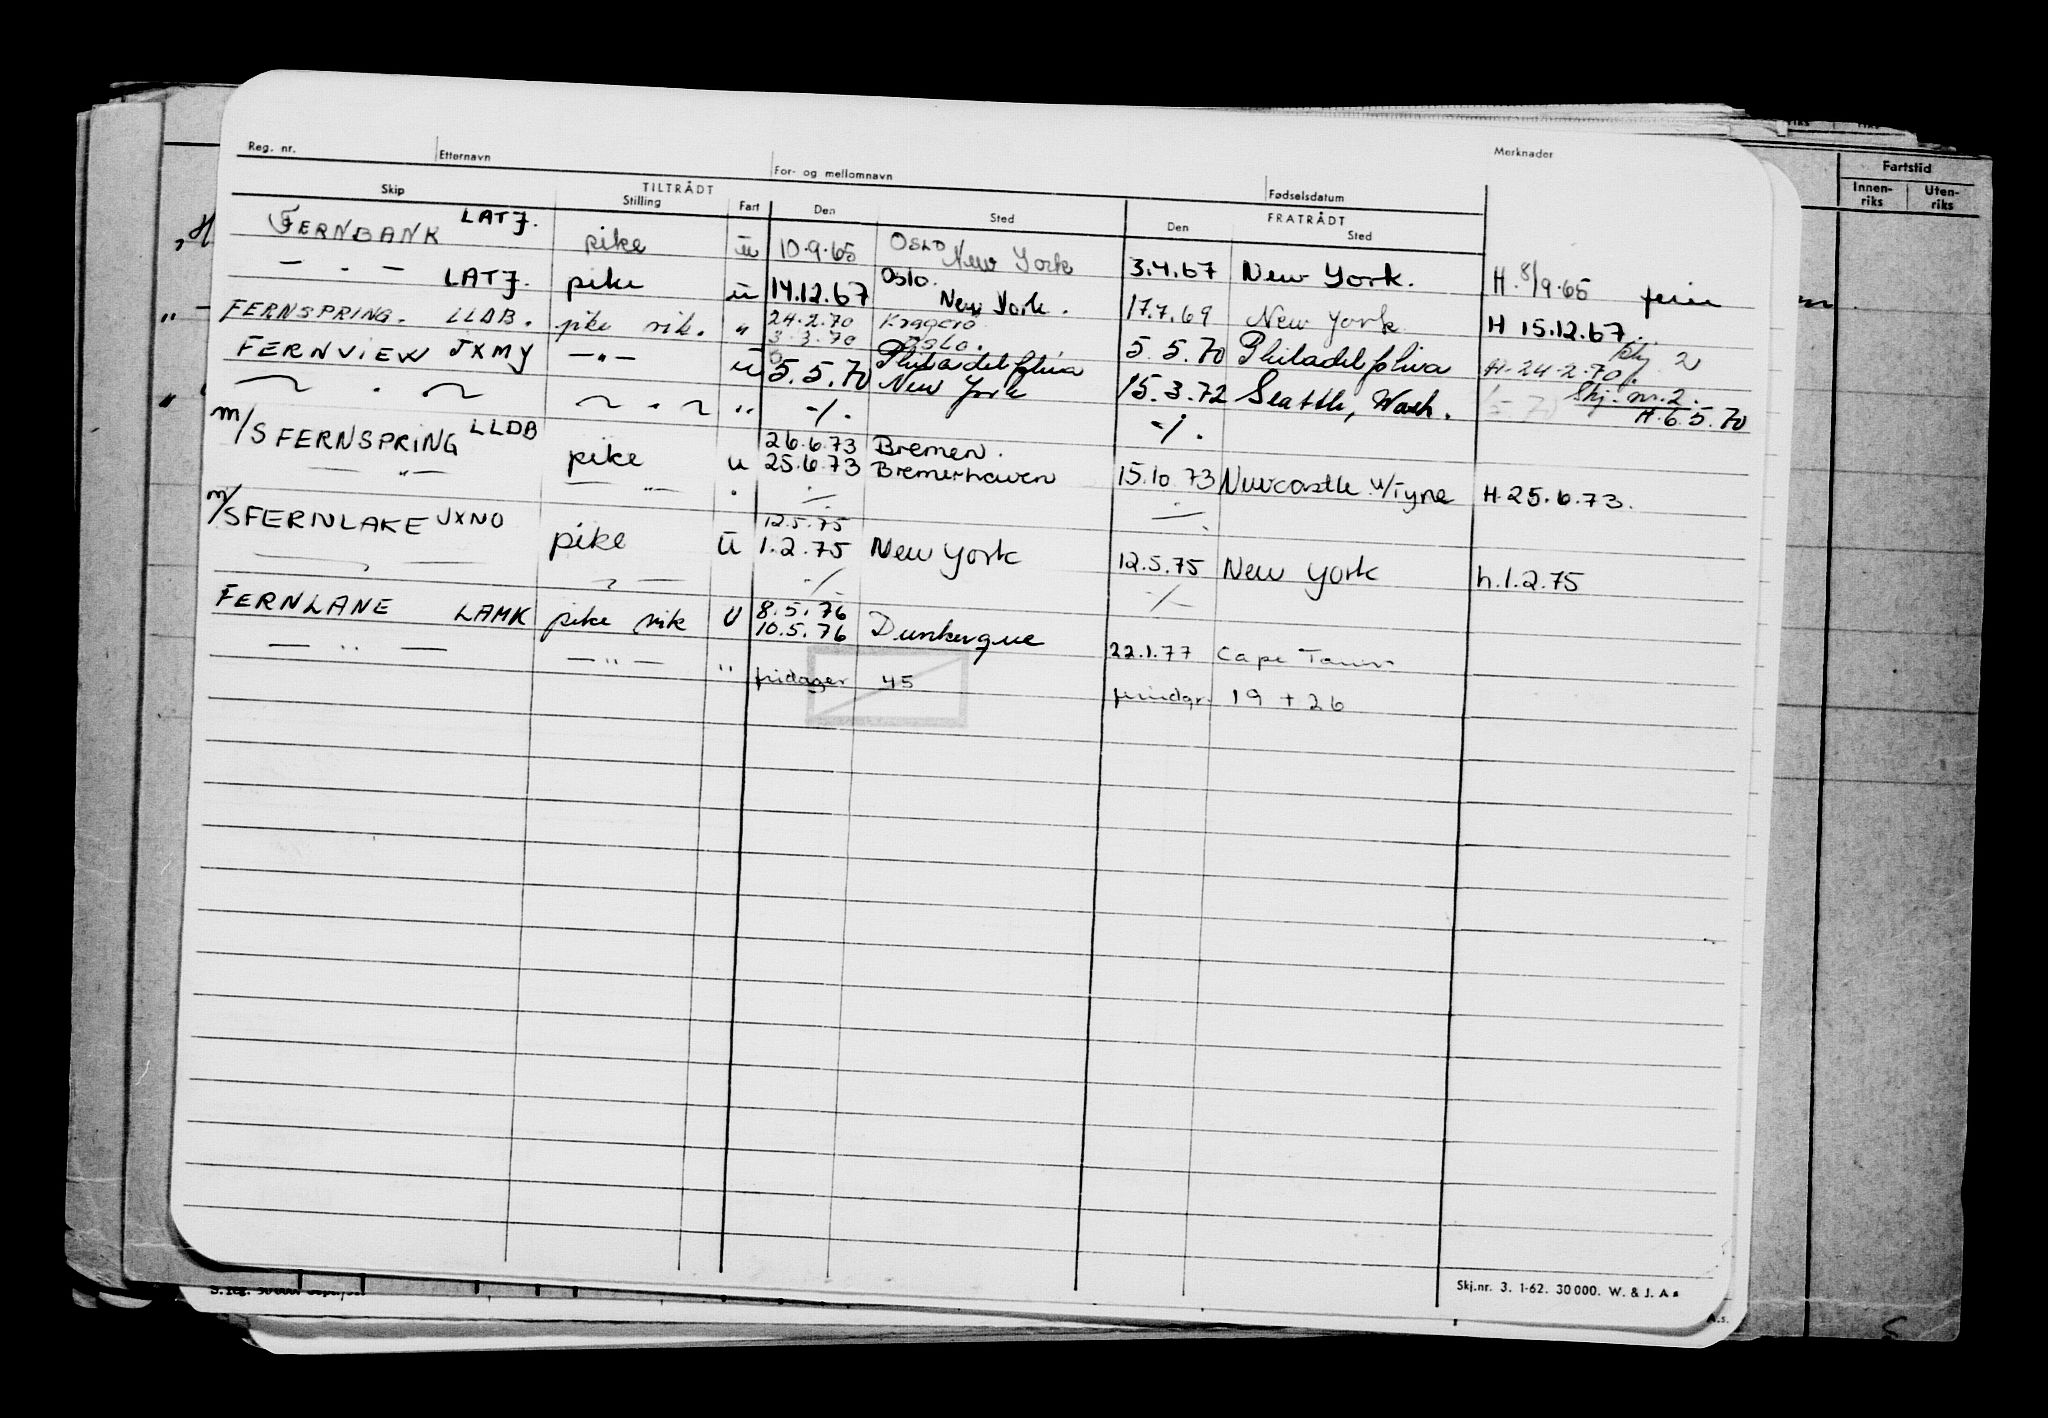 Reg. nr. Etternavn For- og mellomnavn Fødselsdatum Merknader
TILTRÅDT FRATRÅDT
Skip Stilling Fart Den Sted Den Sted
FERNBANK LATJ. pike u 10.9.65 OSLO New York 3.4.67 New York. H. 8/9.65 ferie
— . — LATJ. pike u 14.12.67 Oslo. New York. 17.7.69 New York H 15.12.67
FERNSPRING. LLDB. pike vik. " 24.2.70 Kragerø
3.3.70 Oslo. 5.5.70 Philadelphia H. 24.2.70. Skj 2
FERNVIEW JXMY —"— u 5.5.70 Philadelphia New York 15.3.72 Seattle, Wash. Skj. nr. 2. H. 6.5.70
~ . ~ ~ . ~ " -/. -/.
m/S FERNSPRING LLDB pike u 26.6.73 Bremen.
25.6.73 Bremerhaven 15.10.73 Newcastle u/Tyne H. 25.6.73.
— " —
m/S FERNLAKE JXNO pike u 12.5.75
1.2.75 New York 12.5.75 New York h.1.2.75
-/. -/-
FERNLANE LAMK pike vik U 8.5.76
10.5.76 Dunkerque 22.1.77 Cape Town
— " — — " — " fridager 45 fridgr. 19 + 26
Skj.nr. 3. 1-62. 30000. W. & J. A s
Fartstid
Innen-
riks
Uten-
riks
A.s.